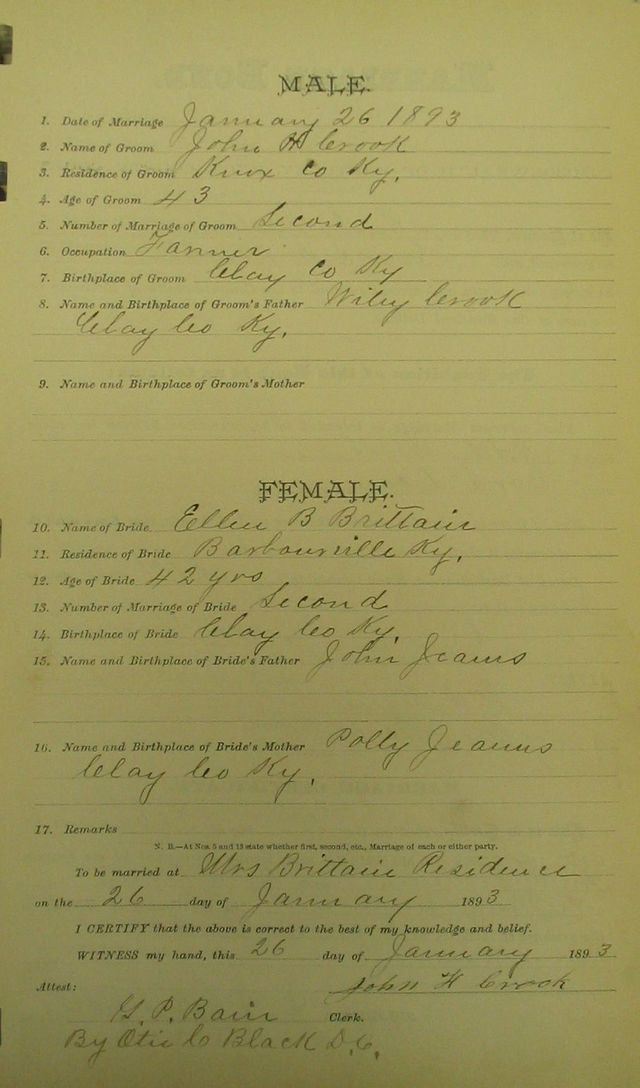 MALE.
1. Date of Marriage January 26 1893
2. Name of Groom John H Crook
3. Residence of Groom Knox Co Ky.
4. Age of Groom 43
5. Number of Marriage of Groom Second
6. Occupation Farmer
7. Birthplace of Groom Clay Co Ky
8. Name and Birthplace of Groom's Father Wiley Crook
Clay Co Ky.
9. Name and Birthplace of Groom's Mother
FEMALE.
10. Name of Bride. Ellen B Brittain
11. Residence of Bride Barbourville Ky.
12. Age of Bride 42 yrs
13. Number of Marriage of Bride Second
14. Birthplace of Bride Clay Co Ky.
15. Name and Birthplace of Bride's Father John Jeams
16. Name and Birthplace of Bride's Mother Polly Jeams
Clay Co Ky.
17. Remarks
N. B.—At Nos. 5 and 13 state whether first, second, etc., Marriage of each or either party.
To be married at Mrs Brittain Residence
on the 26 day of January 1893
I CERTIFY that the above is correct to the best of my knowledge and belief.
WITNESS my hand, this 26 day of January 1893
John H Crook
Attest:
G. P. Bain Clerk.
By Otis C Black D.C.